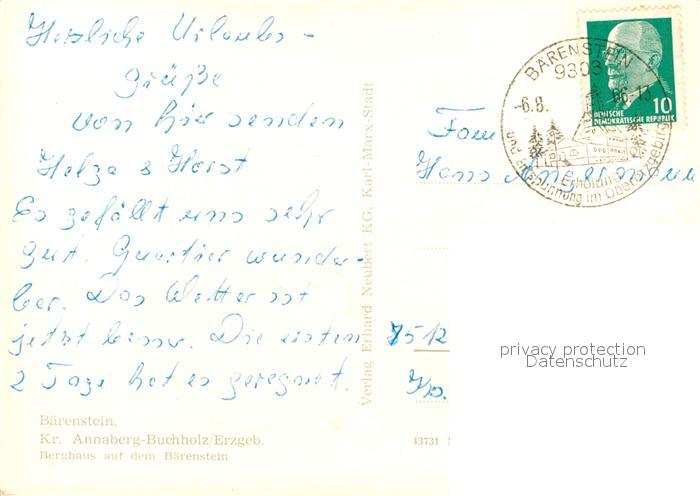 Herzliche Urlaubs-
grüße
von hier senden
Helga & Horst
Es gefällt uns sehr
gut. Quartier wunder-
bar. Das Wetter ist
jetzt besser. Die ersten
2 Tage hat es geregnet.
Bärenstein,
Kr. Annaberg-Buchholz/Erzgeb.
Berghaus auf dem Bärenstein
Verlag Erhard Neubert KG, Karl-Marx-Stadt
BÄRENSTEIN
9303
-6.8. 66-13
Erholung
und Entspannung im Obererzgebirge
10
DEUTSCHE
DEMOKRATISCHE REPUBLIK
Fam
Hans Angermann
7512
Kr.
13731
privacy protection
Datenschutz